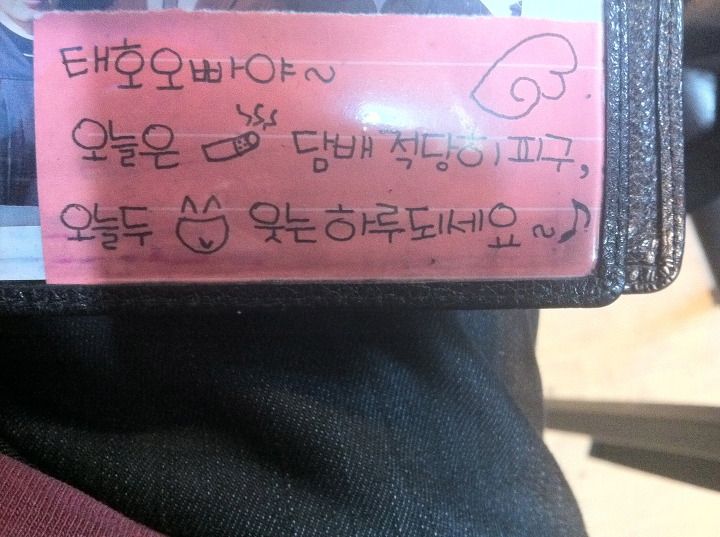 태호오빠야~
오늘은 담배 적당히 피구,
오늘두 웃는 하루되세요~♪